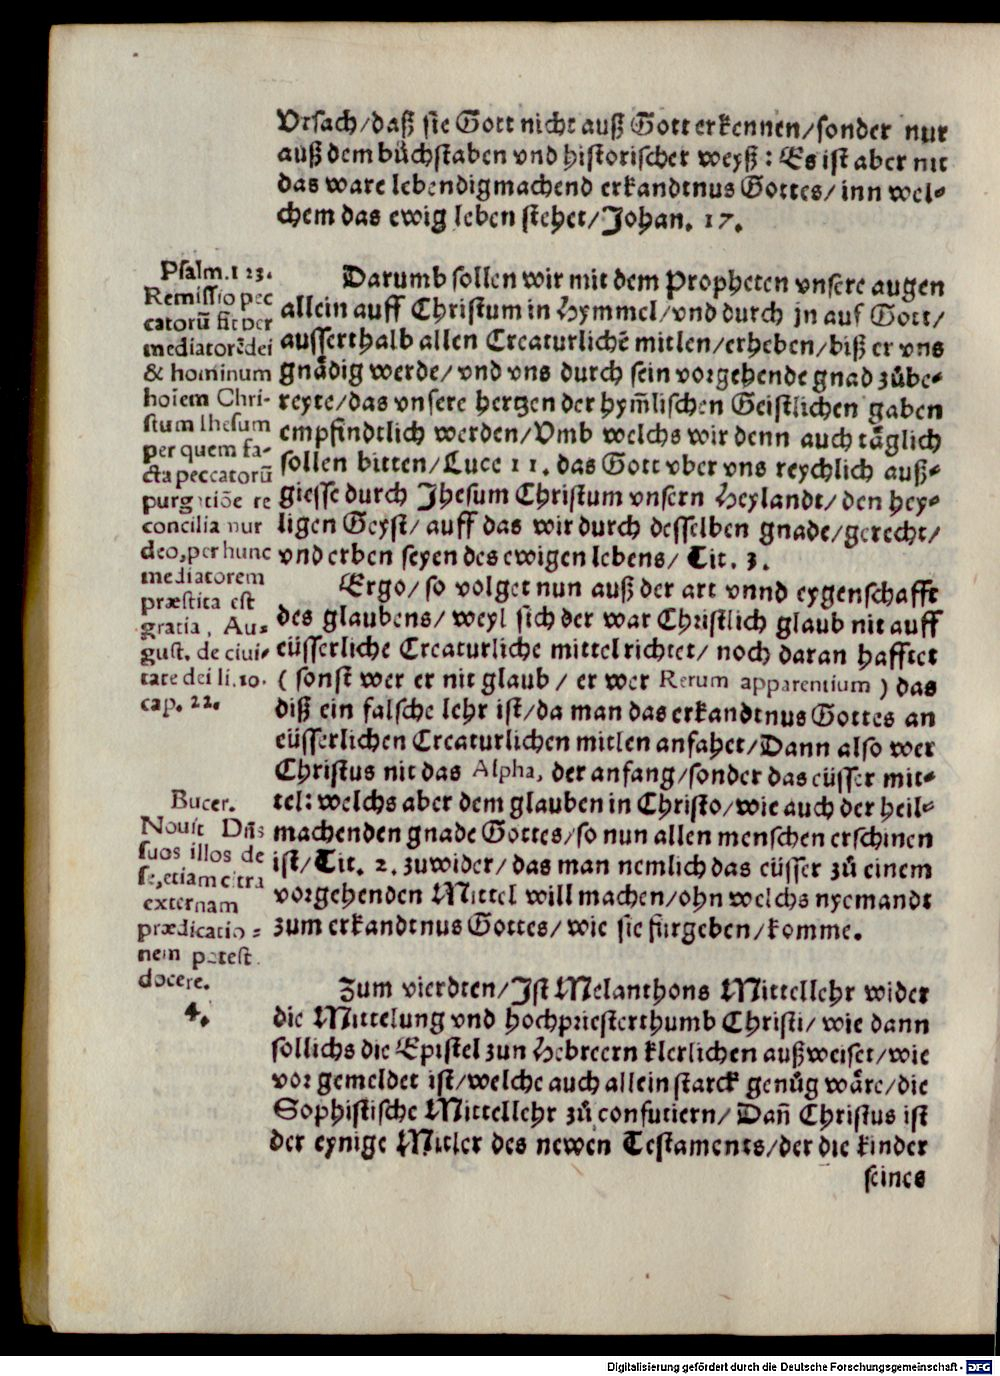 Vrsach/daß sie Gott nicht auß Gott erkennen/sonder nur
auß dem bůchstaben vnd historischer weyß: Es ist aber nit
das ware lebendigmachend erkandtnus Gottes/inn wel⸗
chem das ewig leben stehet/Johan. 17.
Darumb sollen wir mit dem Propheten vnsere augen
allein auff Christum in Hymmel/vnd durch jn auf Gott/
ausserthalb allen Creaturlichẽ mitlen/erheben/biß er vns
gnådig werde/vnd vns durch sein vorgehende gnad zůbe⸗
reyte/das vnsere hertzen der hym̃lischen Geistlichen gaben
empfindtlich werden/Vmb welchs wir denn auch tåglich
sollen bitten/Luce 11. das Gott vber vns reychlich auß⸗
giesse durch Jhesum Christum vnsern Heylandt/den hey⸗
ligen Geyst/auff das wir durch desselben gnade/gerecht/
vnd erben seyen des ewigen lebens/Tit. 3.
Ergo/so volget nun auß der art vnnd eygenschafft
des glaubens/weyl sich der war Christlich glaub nit auff
eüsserliche Creaturliche mittel richtet/noch daran hafftet
(sonst wer er nit glaub/er wer Rerum apparentium) das
diß ein falsche lehr ist/da man das erkandtnus Gottes an
eüsserlichen Creaturlichen mitlen anfahet/Dann also wer
Christus nit das Alpha, der anfang/sonder das eüsser mit⸗
tel: welchs aber dem glauben in Christo/wie auch der heil⸗
machenden gnade Gottes/so nun allen menschen erschinen
ist/Tit. 2. zuwider/das man nemlich das eüsser zů einem
vorgehenden Mittel will machen/ohn welchs nyemandt
zum erkandtnus Gottes/wie sie fürgeben/komme.
Zum vierdten/Jst Melanthons Mittellehr wider
die Mittelung vnd hochpriesterthumb Christi/wie dann
sollichs die Epistel zun Hebreern klerlichen außweiset/wie
vor gemeldet ist/welche auch allein starck genůg wåre/die
Sophistische Mittellehr zů confutiern/Dañ Christus ist
der eynige Mitler des newen Testaments/der die kinder
seines
Psalm.123.
Remissio pec
catorũ fit per
mediatorẽ dei
& hominum
hoiem Chri-
stum Ihesum
per quem fa-
cta peccatorũ
purgatiõe re
concilia mur
deo,per hunc
mediatorem
præstita est
gratia, Au-
gust. de ciui-
tate dei li.10.
cap. 22.
Bucer.
Nouit Dñs
suos illos de
se,etiam citra
externam
prædicatio-
nem potest
docere.
4.
Digitalisierung gefördert durch die Deutsche Forschungsgemeinschaft - DFG